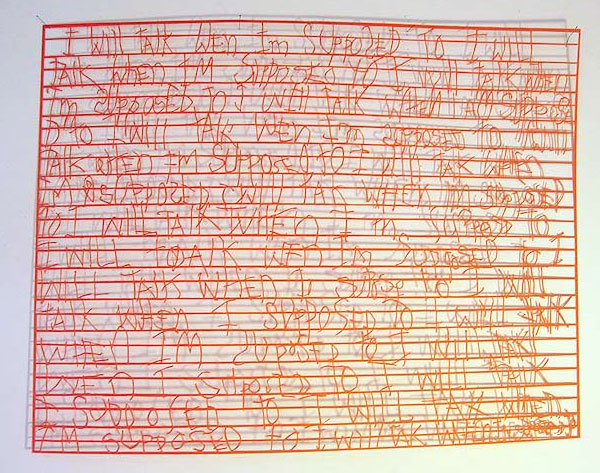 I WILL TALK WEN Im SUPPOSED TO I WILL
TALK WHEN IM SUPPOSED TO I WILL TALK WHEN
I'm SUPPOSED TO I WILL TALK WHEN I'm SUPPOSE
D TO I WILL TALK WEN I'm SUPPOSED TO I WILL
TALK WHEN IM SUPPOSED TO I WILL TALK WHEN
I'M SUPPOSED WILL TALK WHEN I'm SUPPOSED
TO I WILL TALK WHEN I'm SUPPOSED TO
I WILL TALK WEN Im SUPPOSED TO I
WILL TALK WHEN I SUPPOSE TO I WILL
TALK WHEN I SUPPOSED TO I WILL TALK
WHEN I'M SUPPOSED TO I WILL TALK
WEN I SUPOSED TO I WILL TALK
SUPPOSED TO I WILL TALK WHEN
I'M SUPPOSED TO I WILL TALK WHEN